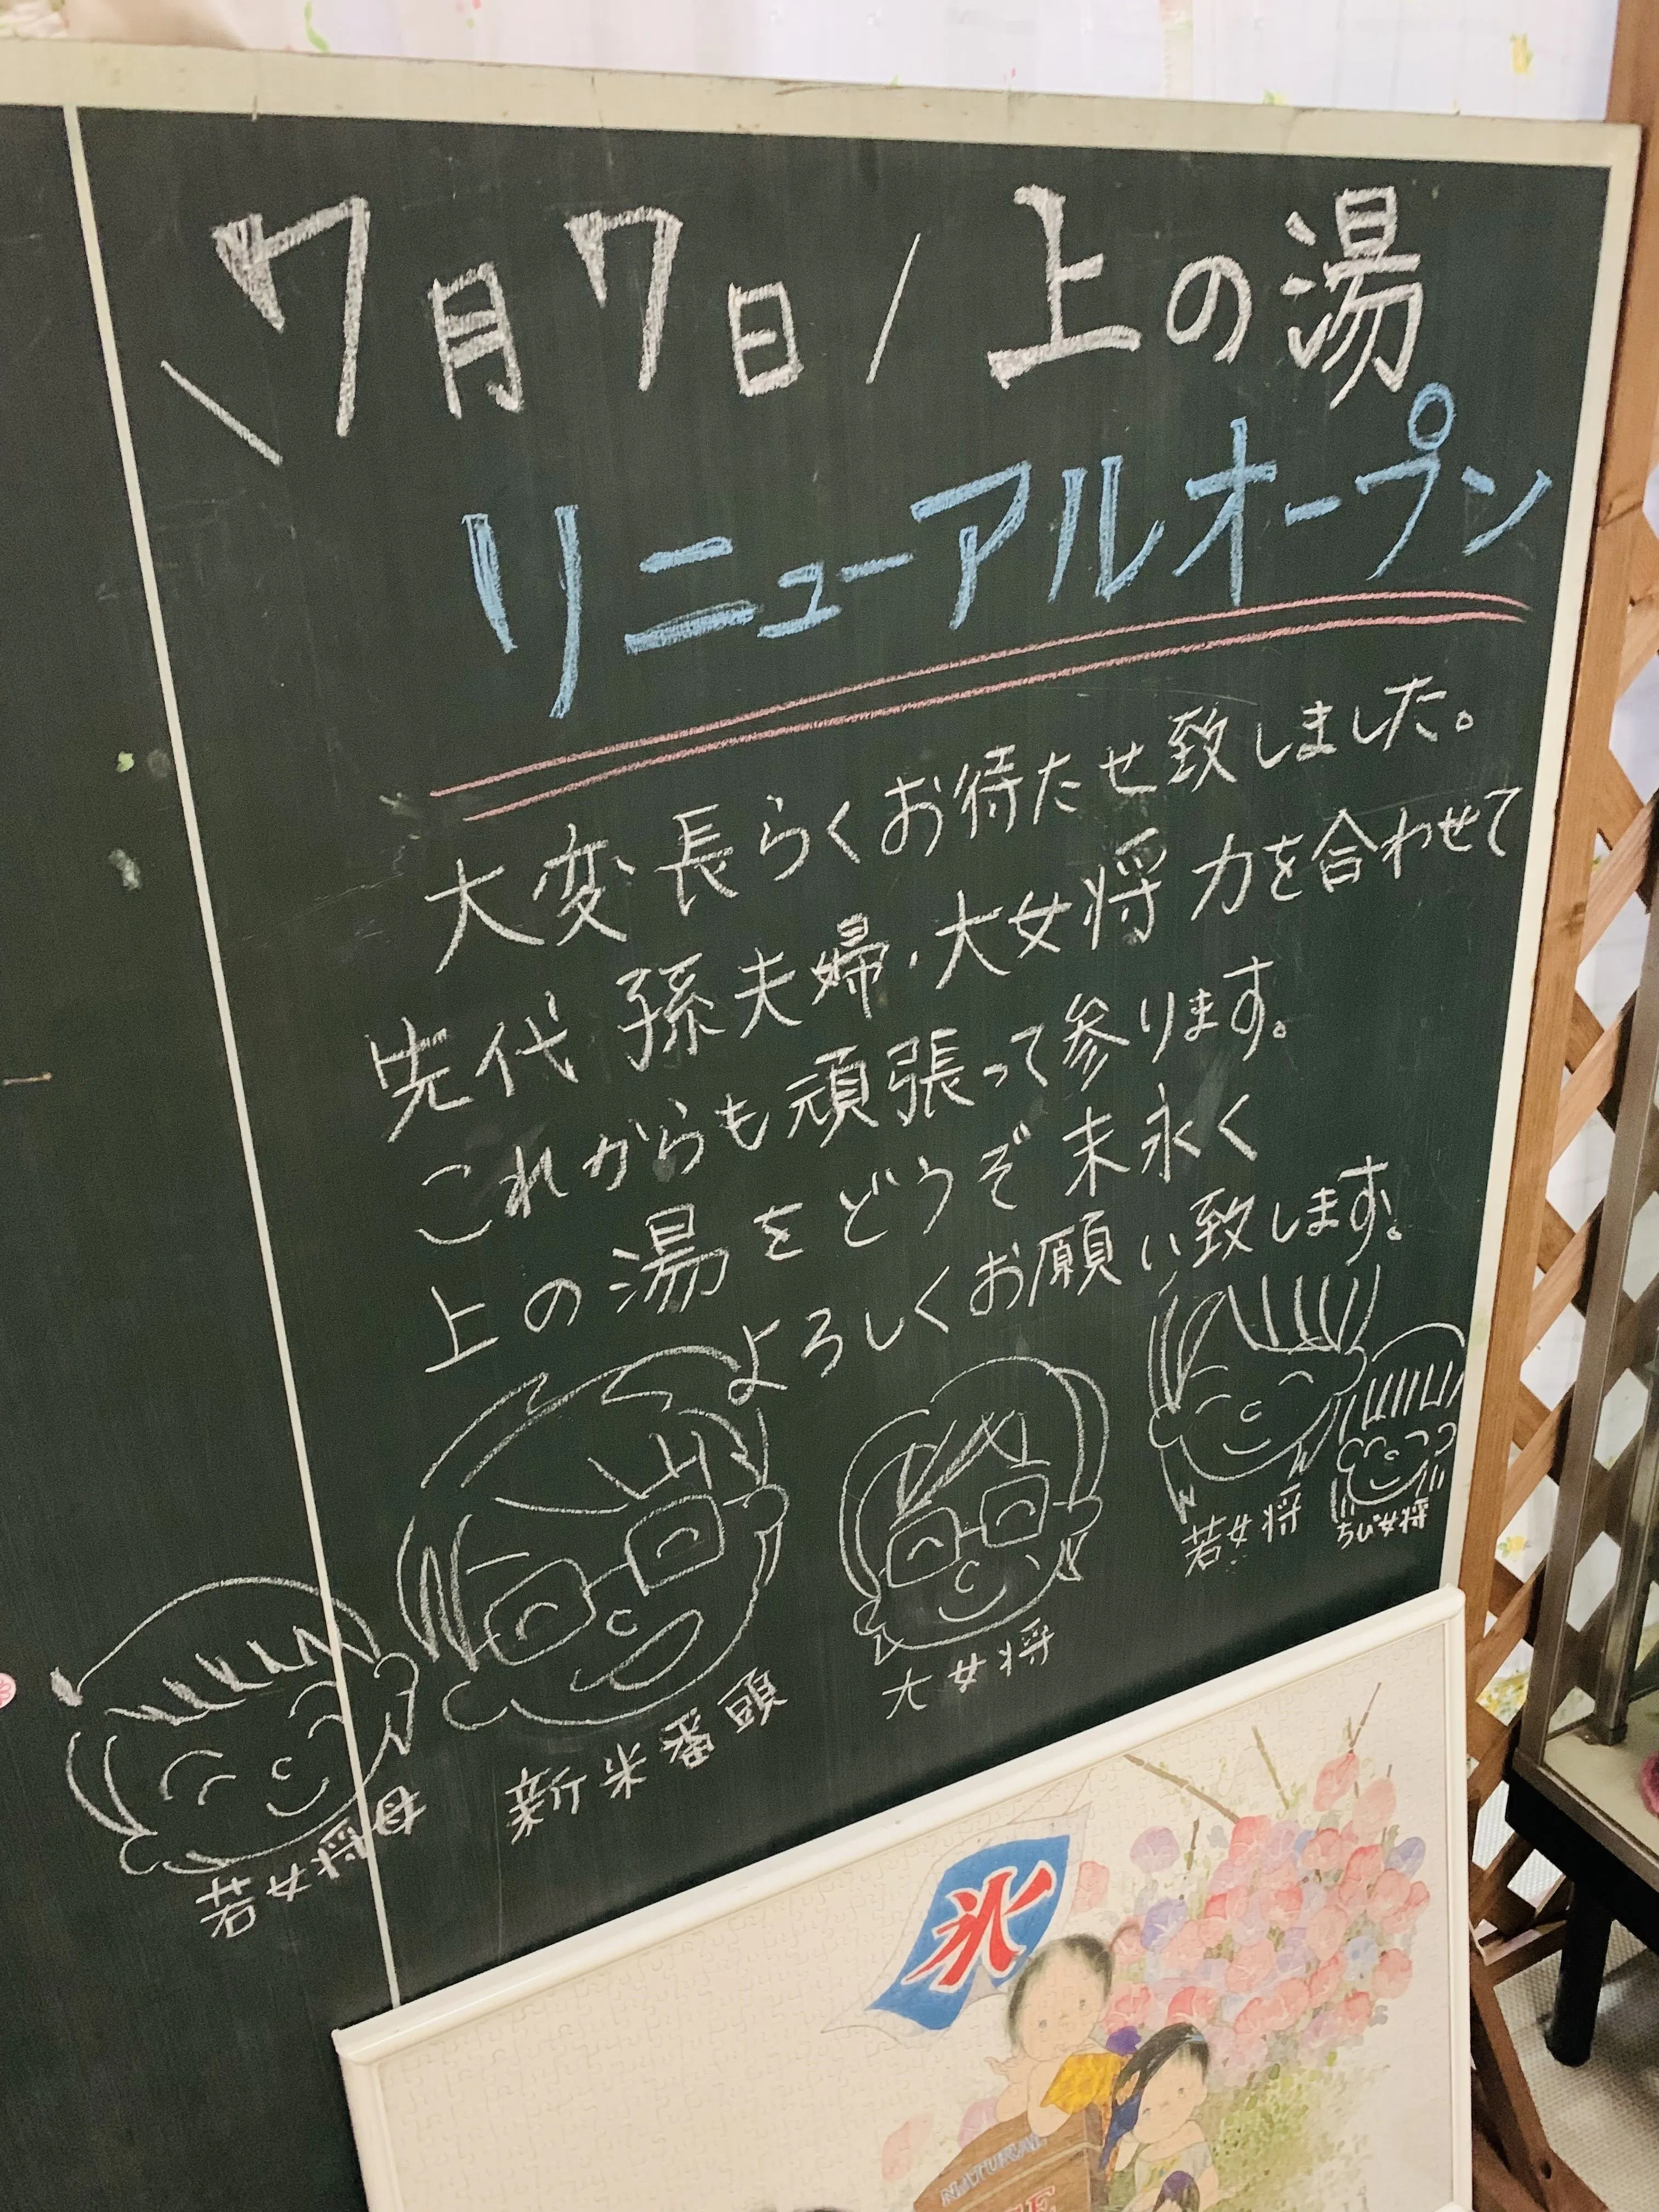 \7月7日/上の湯
リニューアルオープン
大変長らくお待たせ致しました。
先代 孫夫婦・大女将 力を合わせて
これからも頑張って参ります。
上の湯をどうぞ末永く
よろしくお願い致します。
若女将
ちび女将
大女将
新米番頭
若女将 母
氷
NATURAL